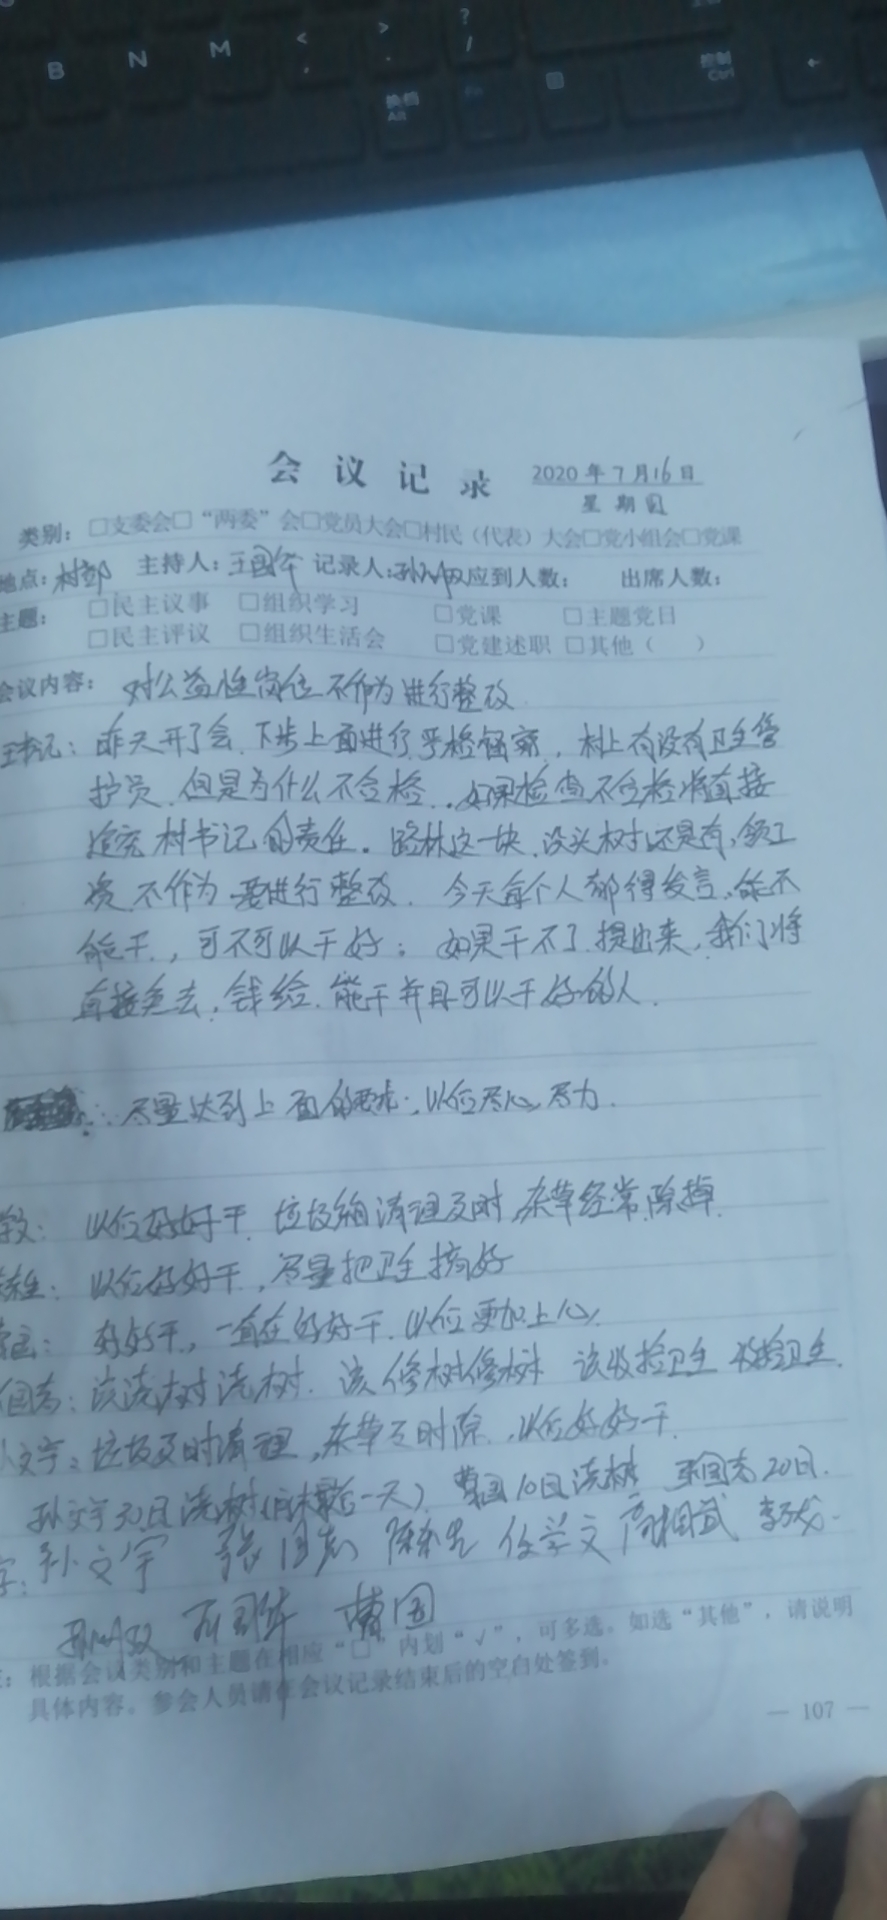 B N M < , > . ? /
换档 Alt Fn 控制 Ctrl ←
会议记录 2020年7月16日
星期四
类别：□支委会□“两委”会□党员大会□村民（代表）大会□党小组会□党课
地点：村部 主持人：王国华 记录人：孙 双 应到人数： 出席人数：
主题： □民主议事 □组织学习 □党课 □主题党日
□民主评议 □组织生活会 □党建述职 □其他（ ）
会议内容： 对公益性岗位不作为进行整改
王书记：昨天开了会，下步上面进行严格 ，村上有没有卫生管
护员，但是为什么不合格，如果检查不合格将直接
追究村书记的责任。路林这一块，没头树还是有，领工
资不作为要进行整改，今天每个人都得发言，能不
能干，可不可以干好；如果干不了提出来，我们将
直接免去，钱给能干并且可以干好的人。
：尽量达到上面的要求，以后尽心尽力。
学文：以后好好干，垃圾箱清理及时，杂草经常除掉。
：以后好好干，尽量把卫生搞好
：好好干，一直在好好干，以后更加上心。
国志：该浇树浇树，该修树修树，该收拾卫生收拾卫生。
孙文宇：垃圾及时清理，杂草及时除，以后好好干。
孙文宇30日浇树（月末最后一天） 国10日浇树 国志20日。
字：孙文宇 张国志 任学文 相武 李
孙 双 王国华 国
注：根据会议类别和主题在相应“□”内划“√”，可多选。如选“其他”，请说明
具体内容。参会人员请在会议记录结束后的空白处签到。
— 107 —